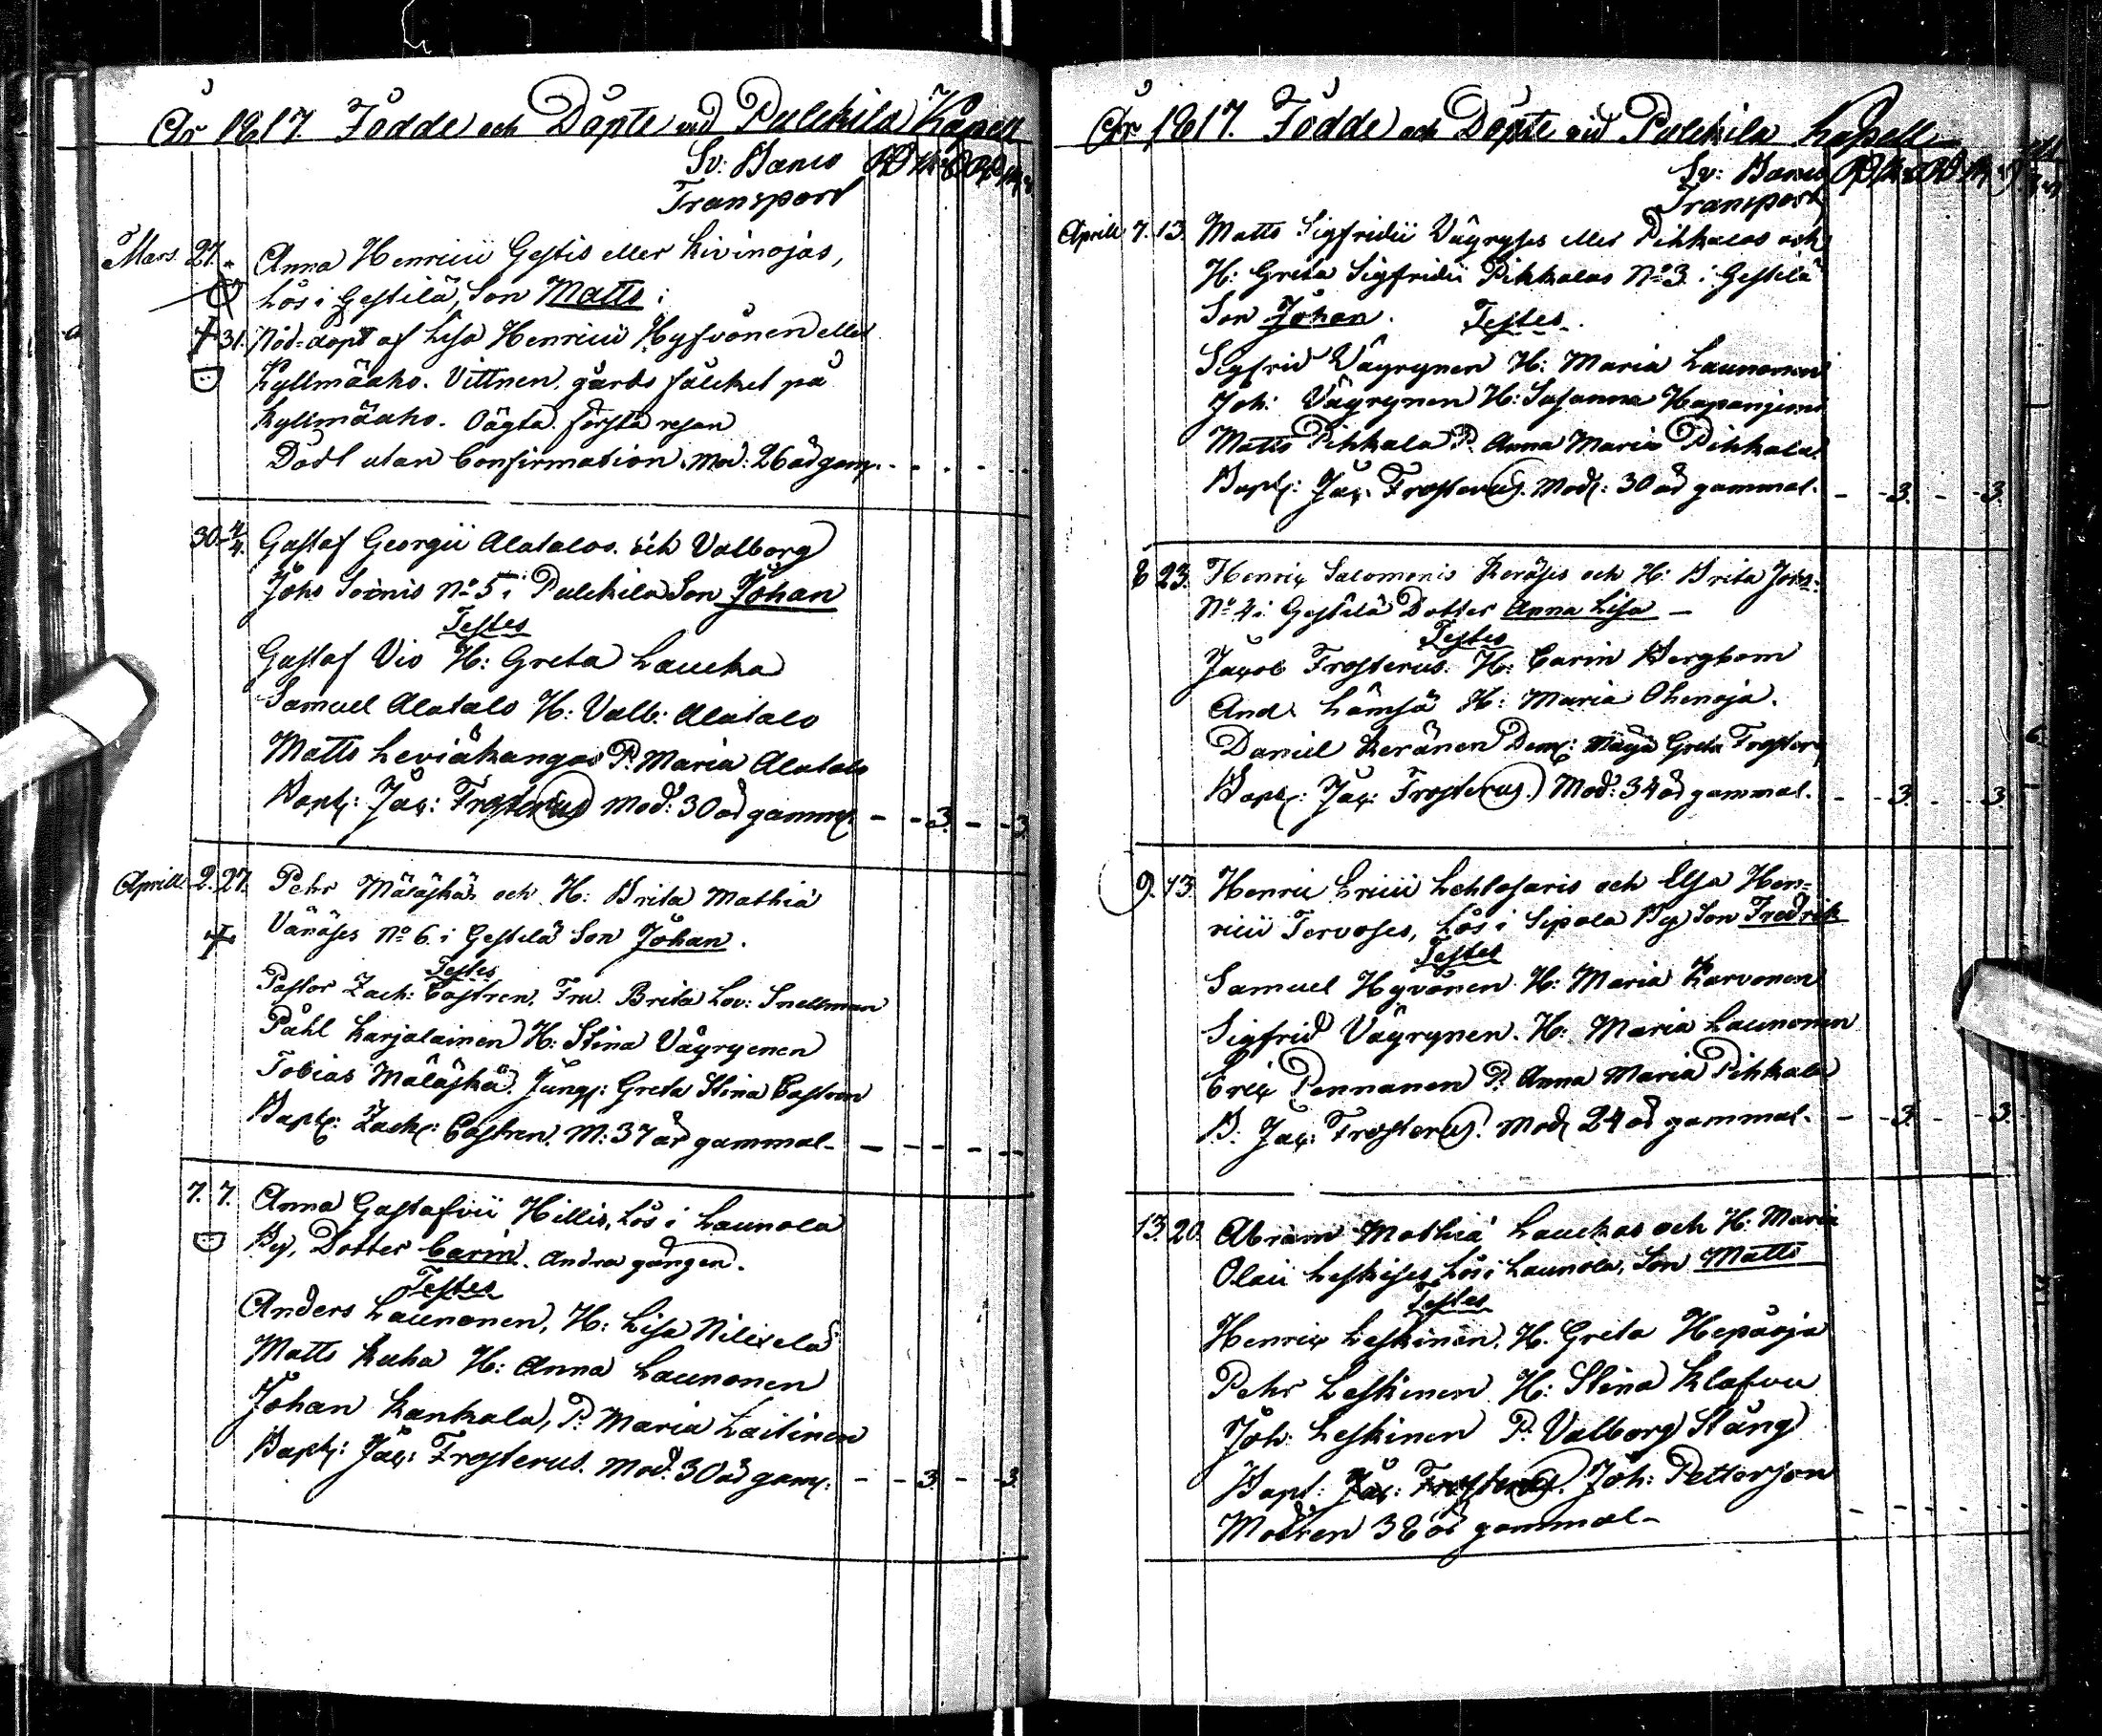 År 1817. Födde och Döpte vid Pulckila Kapell
Sv: Banco
Transport
Mars. 27. Anna Henricii Gestis eller Kivinojas,
Lös i Gestilä, Son Matts
31. Nöd-döpt af Lisa Henricii Hyfvönen eller
Kyllmäaho. Vittnen, gårds fålcket på
Kyllmäaho. Oägta. första resan
Död utan Confirmation. Mod: 26 år gam.
30. 4/4. Gustaf Georgii Alatalos och Valborg
Johs Soinis No 5 i Pulckila Son Johan
Testes
Gustaf Vio H: Greta Laucka
Samuel Alatalo H: Valb: Alatalo
Matts Leviäkangas P. Maria Alatalo
Bapt: Jac: Frosterus Mod: 30 år gamml. - - 3. - - 3.
Aprill. 2. 27. Pehr Mäläskäs och H: Brita Mathiæ
Vänäses No 6 i Gestilä Son Johan.
Testes
Pastor Zach: Castren, Fru Brita Lov: Snellman
Påhl Karjalainen H: Stina Väyrynen
Tobias Mäläskä. Jungf: Greta Stina Castren
Bapt: Zach: Castren. M: 37 år gammal -
7. 7. Anna Gustafvii Hillis, Lös i Launola
By, Dotter Carin. Andra gången.
Testes
Anders Launonen, H: Lisa Nilixelä
Matts Kuha H: Anna Launonen
Johan Kankala, P. Maria Laitinen
Bapt: Jac: Frosterus. Mod: 30 år gam. - - 3. - - 3.
År 1817. Födde och Döpte vid Pulckila Kapell
Sv: Banco
Transport
Aprill 7. 13. Matts Sigfridii Väyryses eller Pihkalas och
H: Greta Sigfridii Pihkalas No 3 i Gestilä
Son Johan. Testes.
Sigfrid Väyrynen H: Maria Launonen
Joh: Väyrynen H: Susanna Hapaniemi
Matts Pihkala P. Anna Maria Pihkala
Bapt: Jac: Frosterus. Mod: 30 år gammal. - - 3. - - 3.
8 23. Henric Salomonis Keräses och H: Brita Johs:
No 4 i Gestilä Dotter Anna Lisa -
Testes
Jacob Frosterus. H: Carin Bergbom
And: Lämsä H: Maria Ohenoja.
Daniel Keränen Dem: Maja Greta Froster
Bapt: Jac: Frosterus. Mod: 34 år gammal. - - 3. - - 3.
9. 13. Henric Ericii Lehtosaris och Elsa Hen=
ricii Tervoses, Lös i Sipola By Son Fredrik
Testes
Samuel Hyvönen H: Maria Karvonen
Sigfrid Väyrynen. H: Maria Launonen
Eric Pennanen P. Anna Maria Pihkala
B. Jac: Frosterus. Mod: 24 år gammal. - - 3. - - 3.
13. 20. Abram Mathiæ Lauckas och H: Maria
Olaii Leskises Lös i Launola, Son Matts
Testes
Henric Leskinen, H. Greta Hepäoja
Pehr Leskinen H: Stina Klafvu
Joh: Leskinen P: Valborg Stång
Bapt: Jac: Frosterus. Joh: Petterson
Modren 38 år gammal -